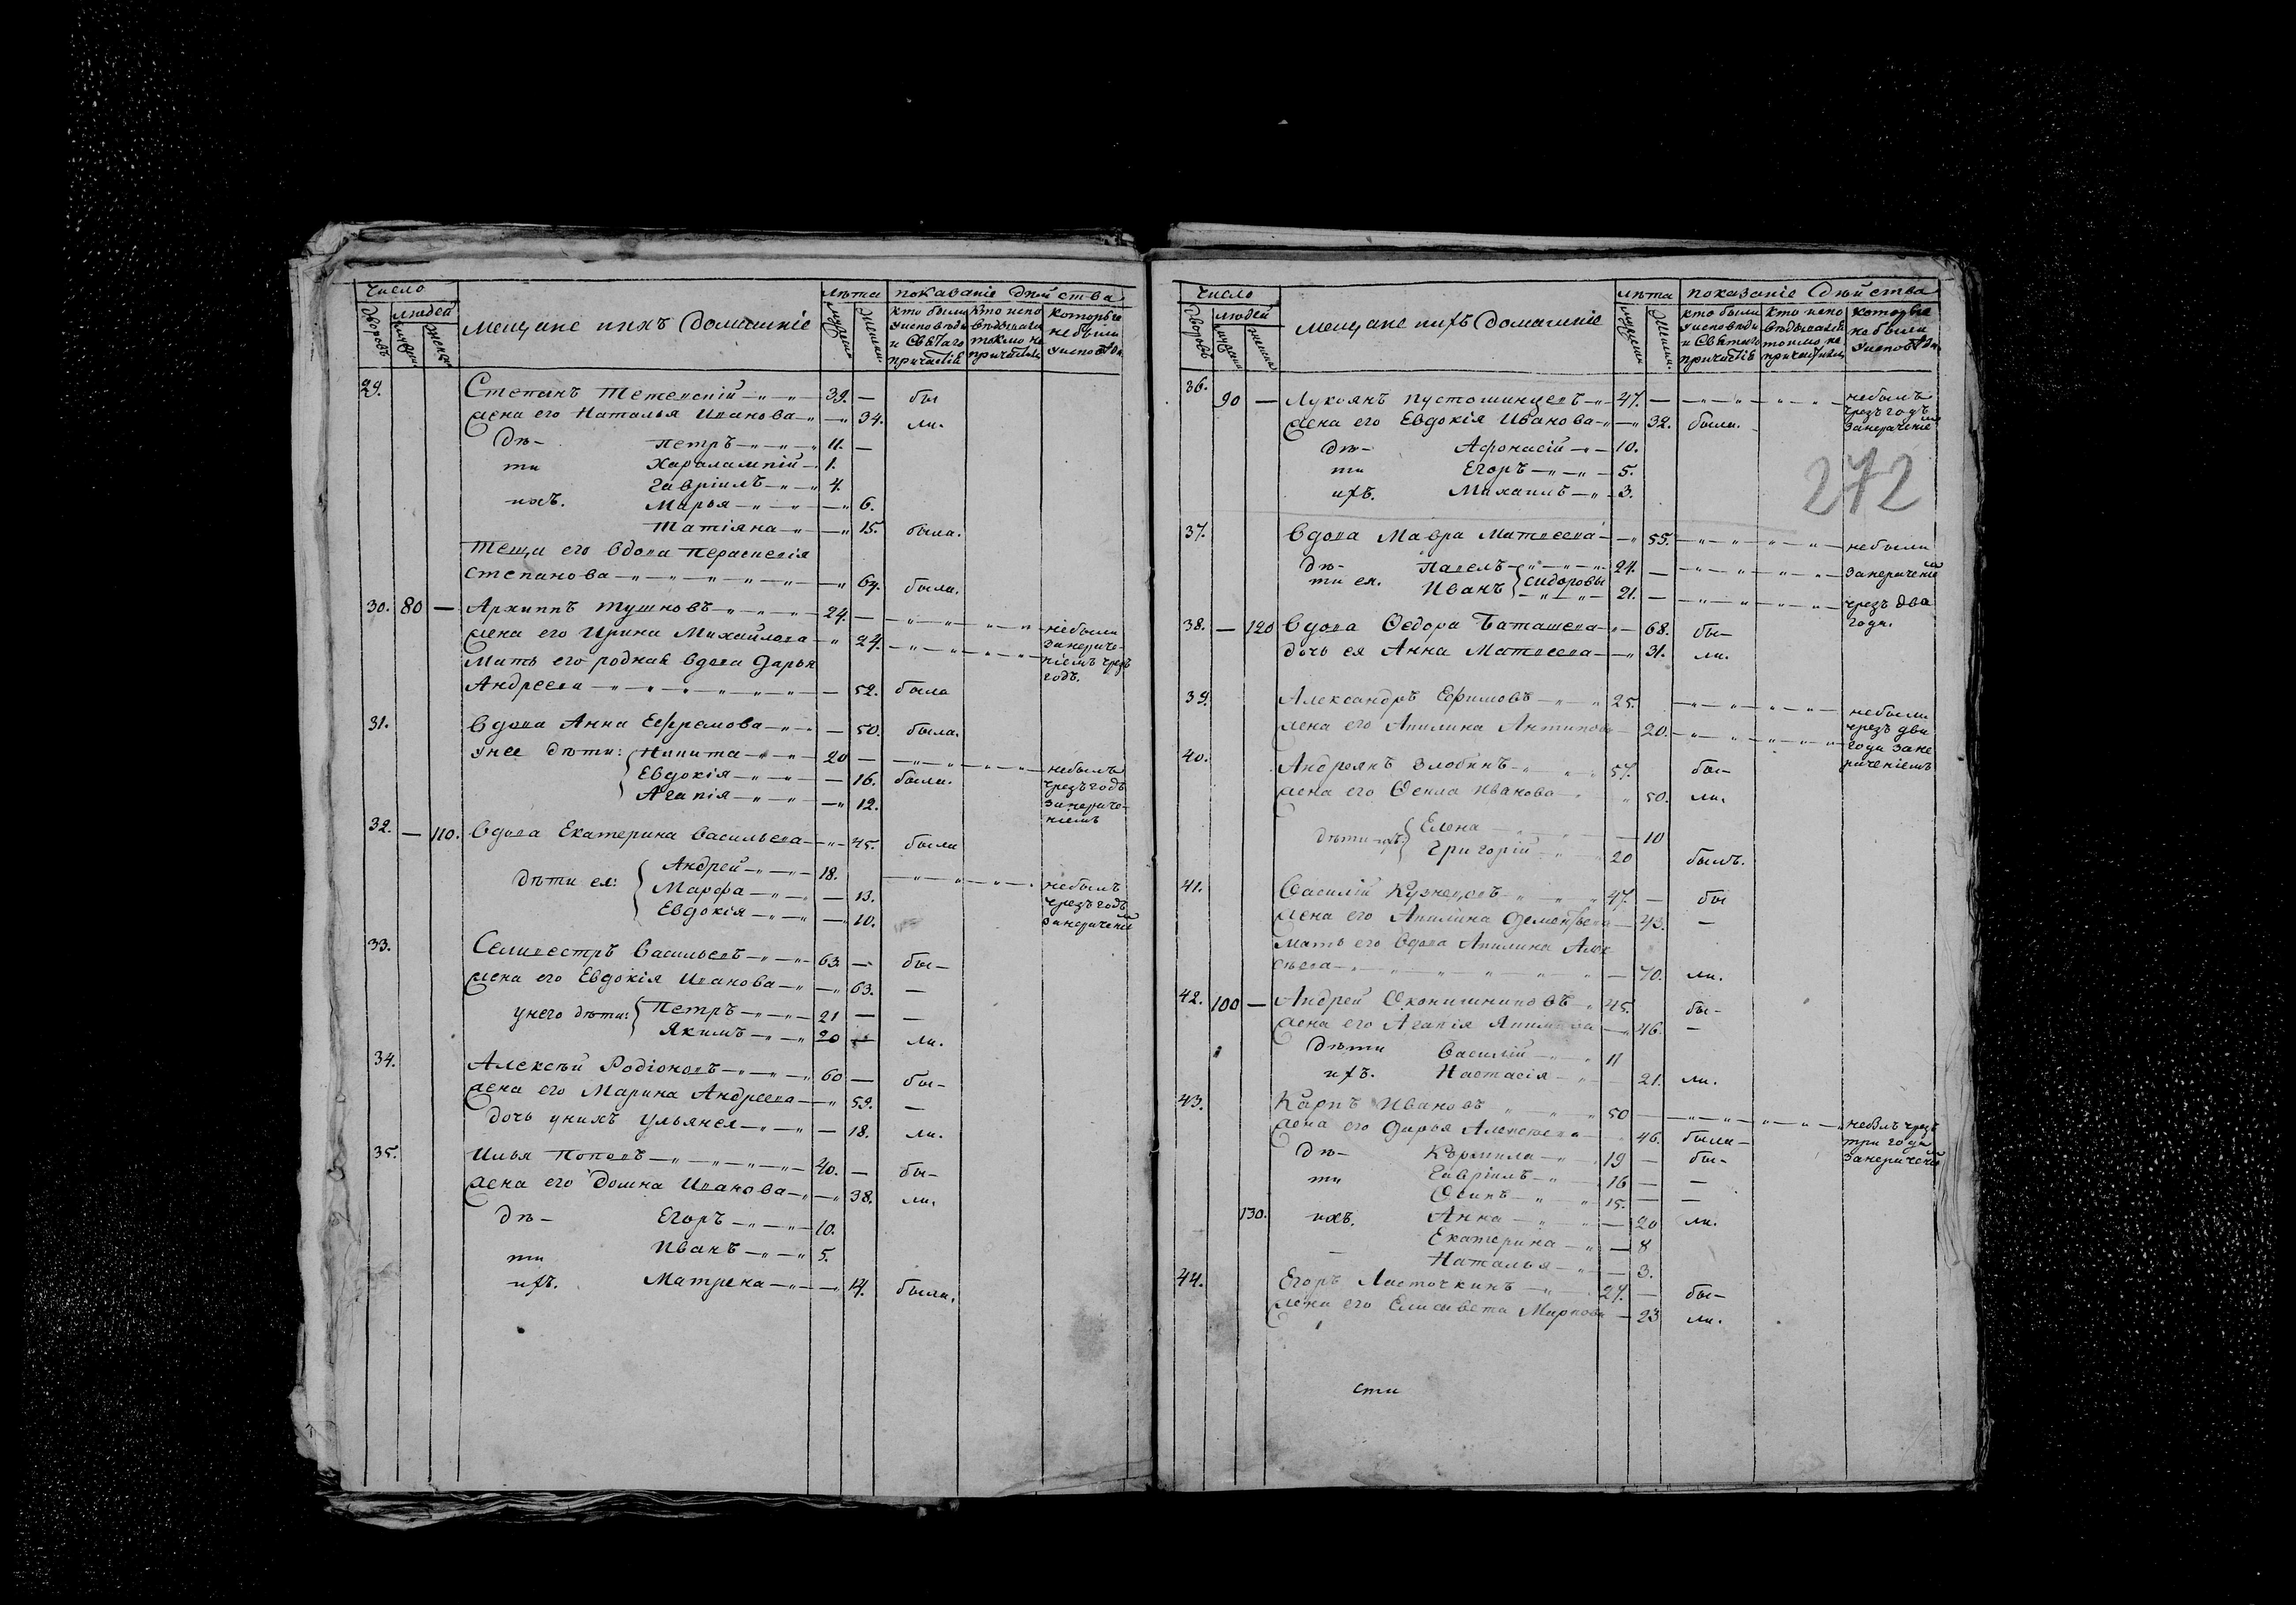 число лѣта показаніе дѣйства
дворовъ людей мужеска женска Мещане и ихъ домашніе мужеска женска кто были у исповѣди и Святаго причастія кто исповѣдывались токмо не причастились которые не были у исповѣди
29. Степанъ 39. — бы
жена его Наталья Иванова — 34. ли.
дѣ- Петръ 11. —
ти Харалампій 1.
Гавріилъ 4.
ихъ. Марья — 6.
Татіяна — 15. была.
теща его вдова Параскевія
Степанова — 64. была.
30. 80 — Архиппъ Тушновъ 24. — небыли
жена его Ирина Михайлова — 24. занераче-
Мать его родная вдова Дарья ніемъ чрезъ
Андреева — 52. была годъ.
31. Вдова Анна Ефремова — 50. была.
у нее дѣти: Никита 20 — небылъ
Евдокія — 16. была. чрезъ годъ
Агапія — 12. занераче-
ніемъ
32. — 110. Вдова Екатерина Васильева — 45. была
дѣти ея: Андрей 18. небылъ
Марфа — 13. чрезъ годъ
Евдокія — 10. занераченіемъ
33. Селивестръ Васильевъ 63 — бы-
жена его Евдокія Иванова — 63. —
у него дѣти: Петръ 21 — —
Якимъ 20 — ли.
34. Алексѣй Родіоновъ 60 — бы-
жена его Марина Андреева — 59. —
дочь у нихъ Ульянея — 18. ли.
35. Илья Поповъ 40. — бы-
жена его Домна Иванова — 38. ли.
дѣ- Егоръ 10.
ти Иванъ 5.
ихъ. Матрена — 14. была.
число лѣта показаніе дѣйства
дворовъ людей мужеска женска Мещане и ихъ домашніе мужеска женска кто были у исповѣди и Святаго причастія кто исповѣдывались токмо не причастились которые не были у исповѣди
36. 90 — Лукоянъ Пустошинцевъ 47. — небылъ
чрезъ годъ
жена его Евдокія Иванова — 32. была. занераченіемъ
дѣ- Афонасій 10.
ти Егоръ 5.
ихъ. Михаилъ 3.
272
37. Вдова Мавра Матвеева — 55. небыли
дѣ- Павелъ 24. — занераченіемъ
ти ея. Иванъ Сидоровы 21. — чрезъ два
года.
38. — 120 Вдова Ѳедора Баташева — 68. бы-
дочь ея Анна Матвеева — 31. ли.
39. Александръ Ефимовъ 25. небыли
жена его Акилина Антипова 20. чрезъ два
года зане
раченіемъ
40. Андреянъ Злобинъ 57. бы-
жена его Ѳекла Иванова 50. ли.
дѣти ихъ: Елена — 10
Григорій 20 былъ.
41. Василій Кузнецовъ 47. — бы
жена его Акилина Дементьева — 43. —
мать его вдова Акилина Алек
сѣева — 70. ли.
42. 100 — Андрей Оконишниковъ 45. бы-
жена его Агапія — 46. —
дѣти Василій 11
ихъ. Настасія — 21. ли.
43. Карпъ Ивановъ 50 — небылъ чрезъ
жена его Дарья Алексѣева 46. была- три года
дѣ- Кормила 19 — бы- занераченіемъ
ти Гавріилъ 16 — —
Осипъ 15. — —
130. ихъ. Анна — 20 ли.
Екатерина — 8
Наталья — 3.
44. Егоръ Ласточкинъ 27. — бы-
жена его Елисавета Маркова — 23 ли.
сти